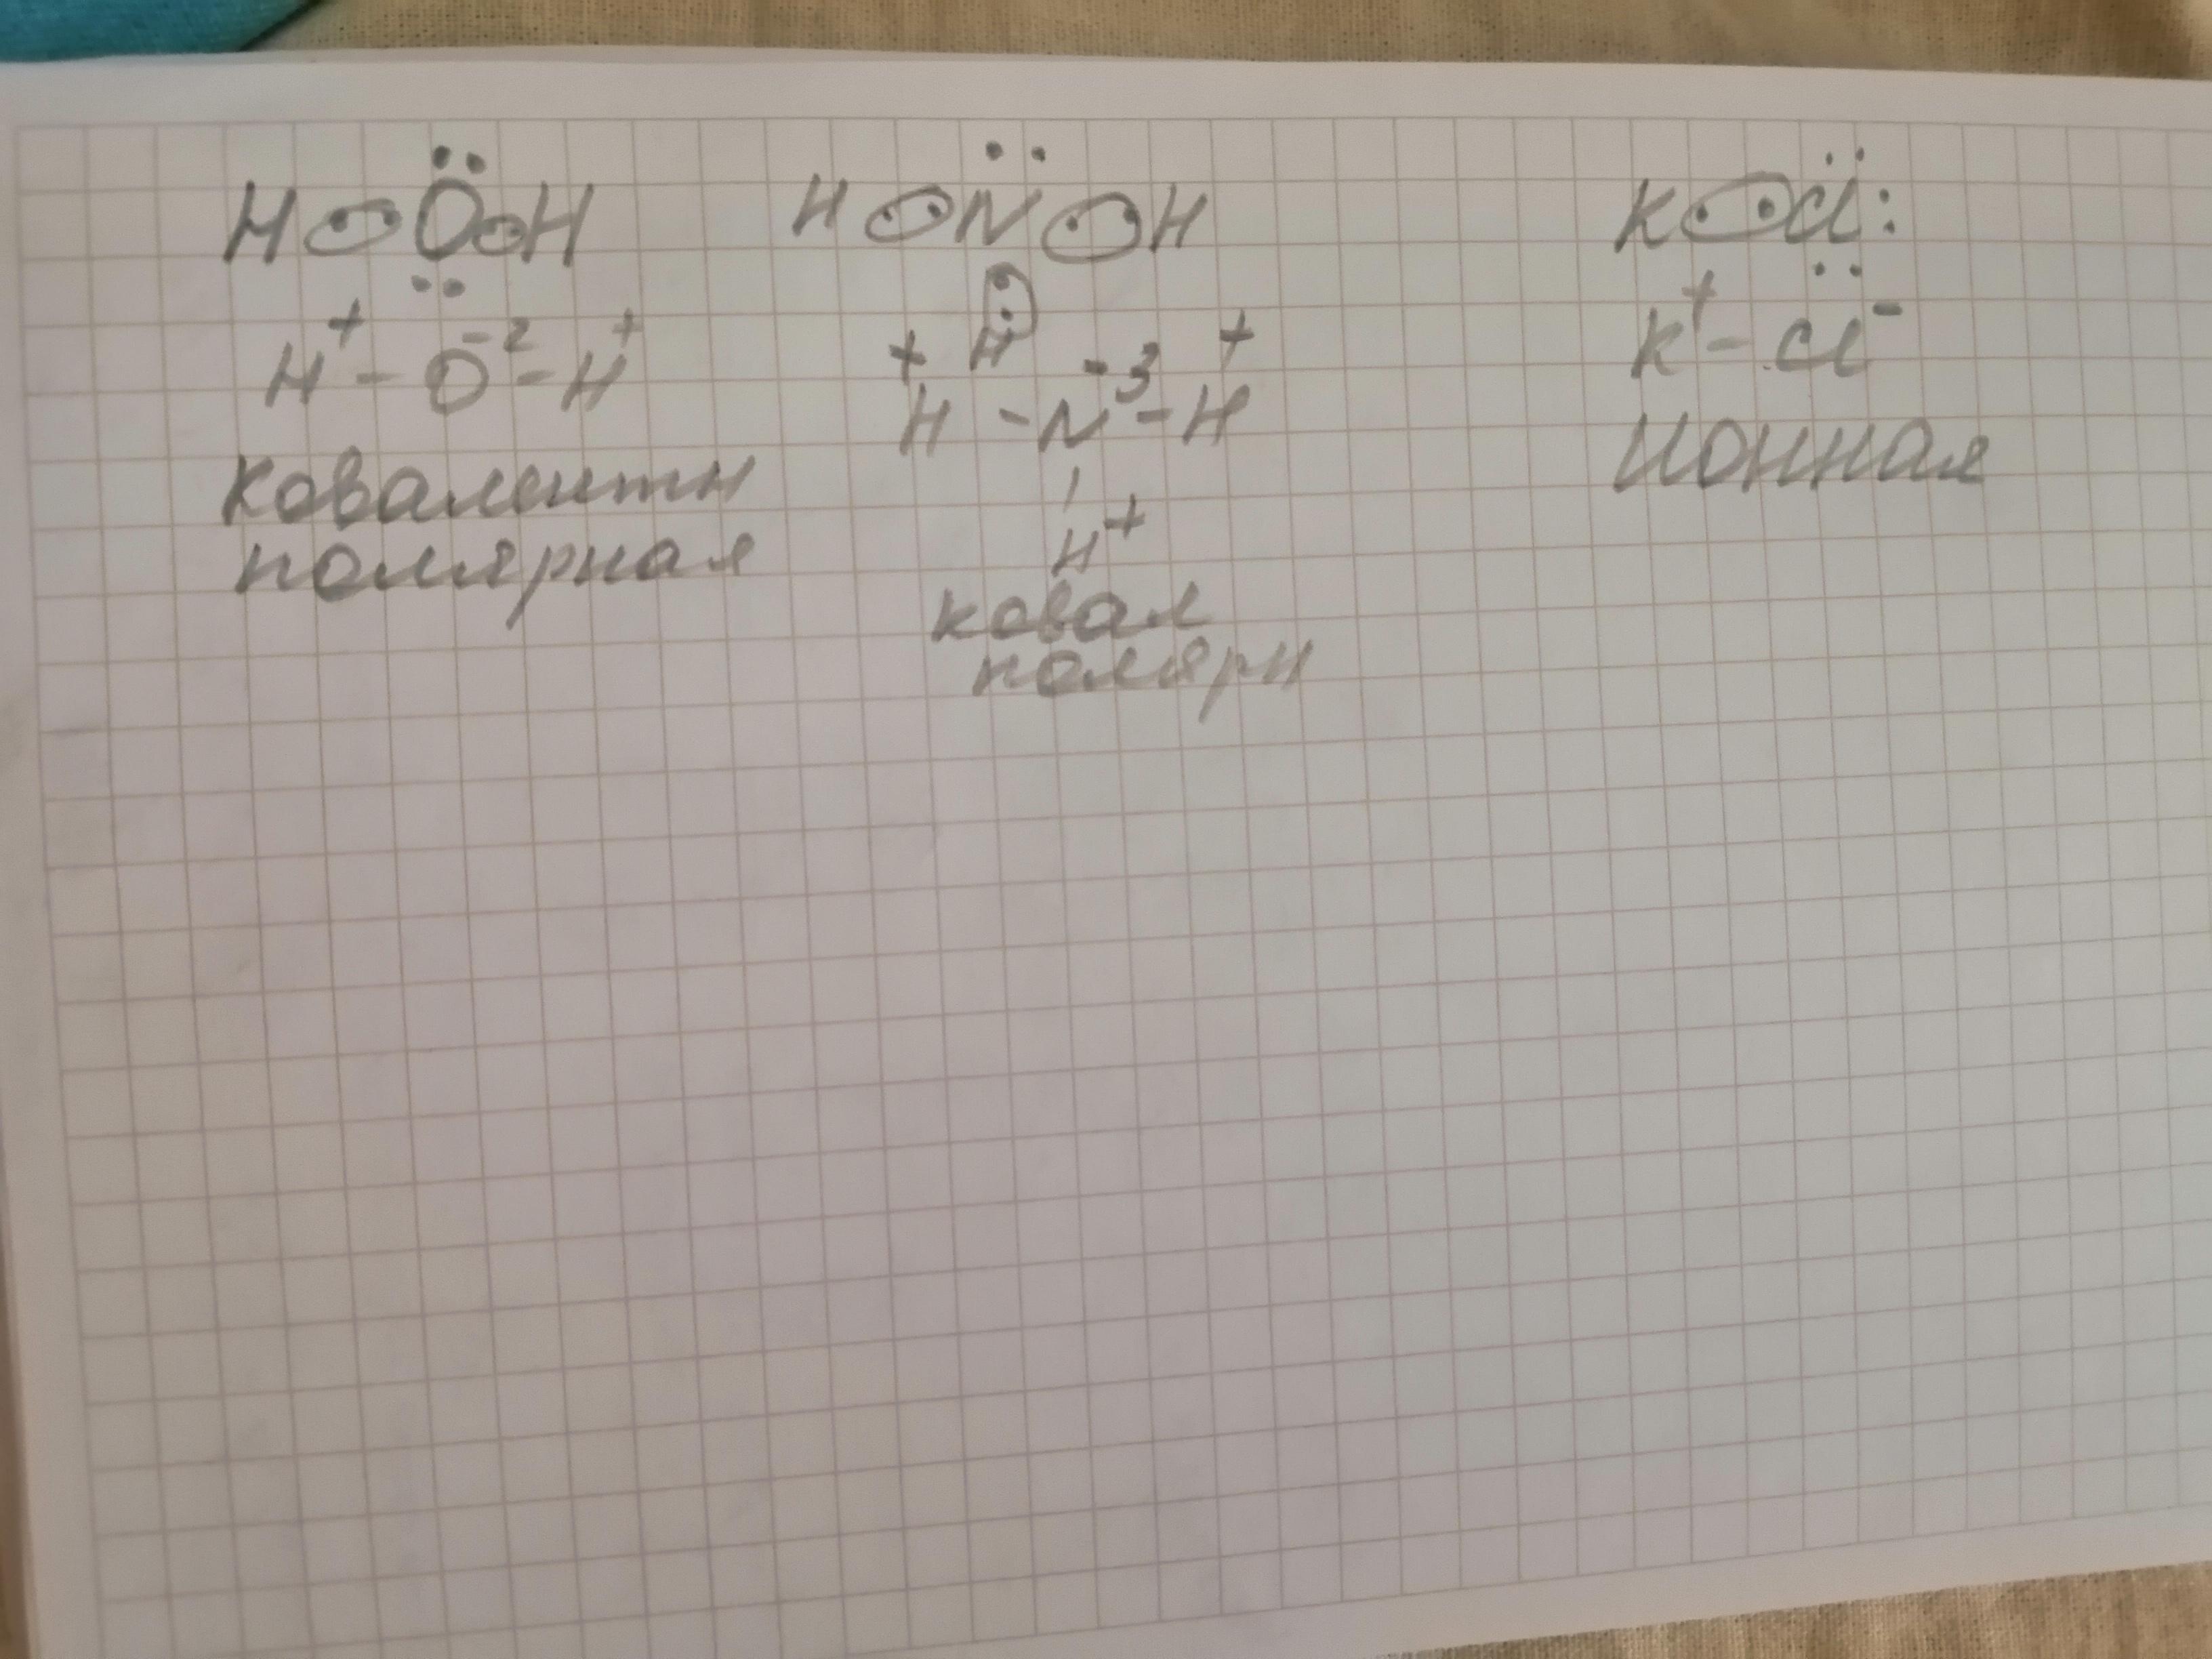 H : Ö : H
H⁺ - O⁻² - H⁺
ковалентн
полярная
H : N̈ : H
:
H
H⁺ - N⁻³ - H⁺
|
H⁺
ковал
полярн
K : C̈l :
K⁺ - Cl⁻
ионная